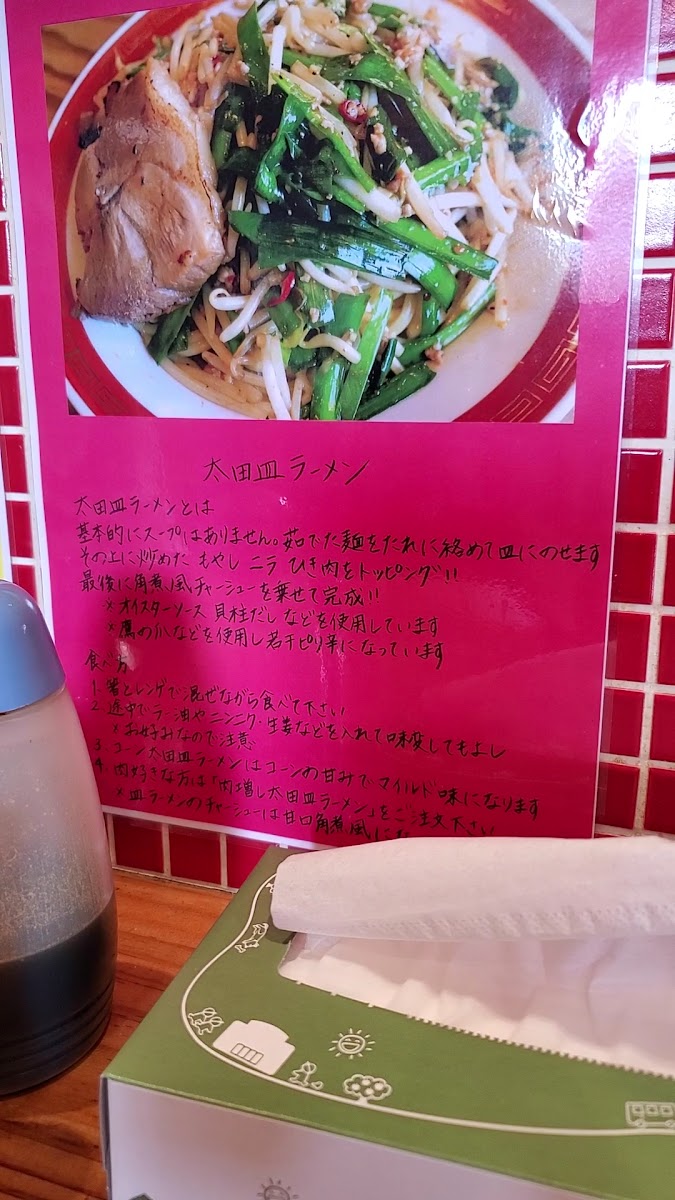 太田皿ラーメン
太田皿ラーメンとは
基本的にスープはありません。茹でた麺をたれに絡めて皿にのせます
その上に炒めた もやし ニラ ひき肉をトッピング!!
最後に角煮風チャーシューを乗せて完成!!
※オイスターソース 貝柱だしなどを使用しています
※鷹の爪などを使用し若干ピリ辛になっています
食べ方
1. 箸とレンゲで混ぜながら食べて下さい
2. 途中でラー油やニンニク・生姜などを入れて味変してもよし
※お好みなので注意
3. コーン太田皿ラーメンはコーンの甘みでマイルド味になります
4. 肉好きな方は「肉増し太田皿ラーメン」をご注文下さい
※皿ラーメンのチャーシューは甘口角煮風に